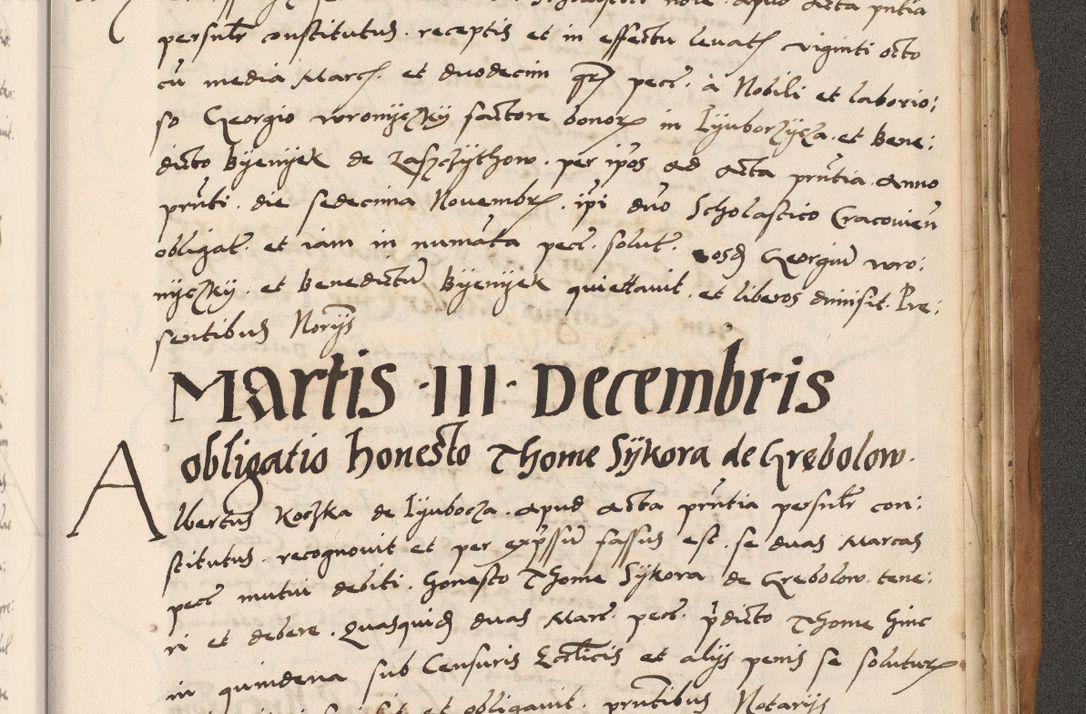 persnlr constitutus . receptis et in effectu levatis viginti octo
cu media Marcs . et duodecim grs pecs . a Nobili et laborio:
so Georgio woronyczky factore bonor in Lyuborzycza . et Bene:
dicto Byenyek de Raszczythow . per ipos ad acta prntia . anno
prnti . die sedecima Novembr . ipi dno Scholastico Cracovien
obligat . et iam in numata pecs . solut . eosd Georgiu woro:
nyczky . et Benedictu Byenyek quiettavit . et liberos dimisit . Pre:
sentibus Norys
Martis · III · Decembris
obligatio honesto Thome Sykora de Grebolow .
Albertus Koczka de Lyubocza . apud acta prntia persnlr con:
stitutus . recognovit et per expssu fassus est . se duas Marcas
pecs mutui debiti . honesto Thome Sykora de Grebolow . tene:
ri et debere . Quasquid duas Marcs . pecs . pdicto Thome hinc
in quindena sub Censuris Ecclicis et alijs penis se solutur
et obligavit . prntibus Notarijs